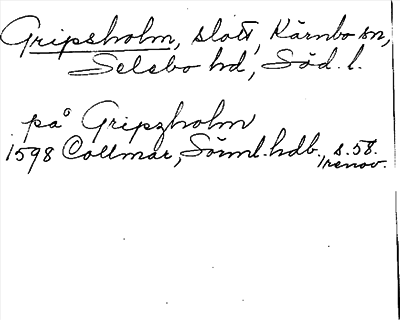 Gripsholm, slott, Kärnbo sn,
Selebo hd, Söd. l.
på Gripzholm
1598 Collmar, Sörml. hdb., s. 58.
renov.